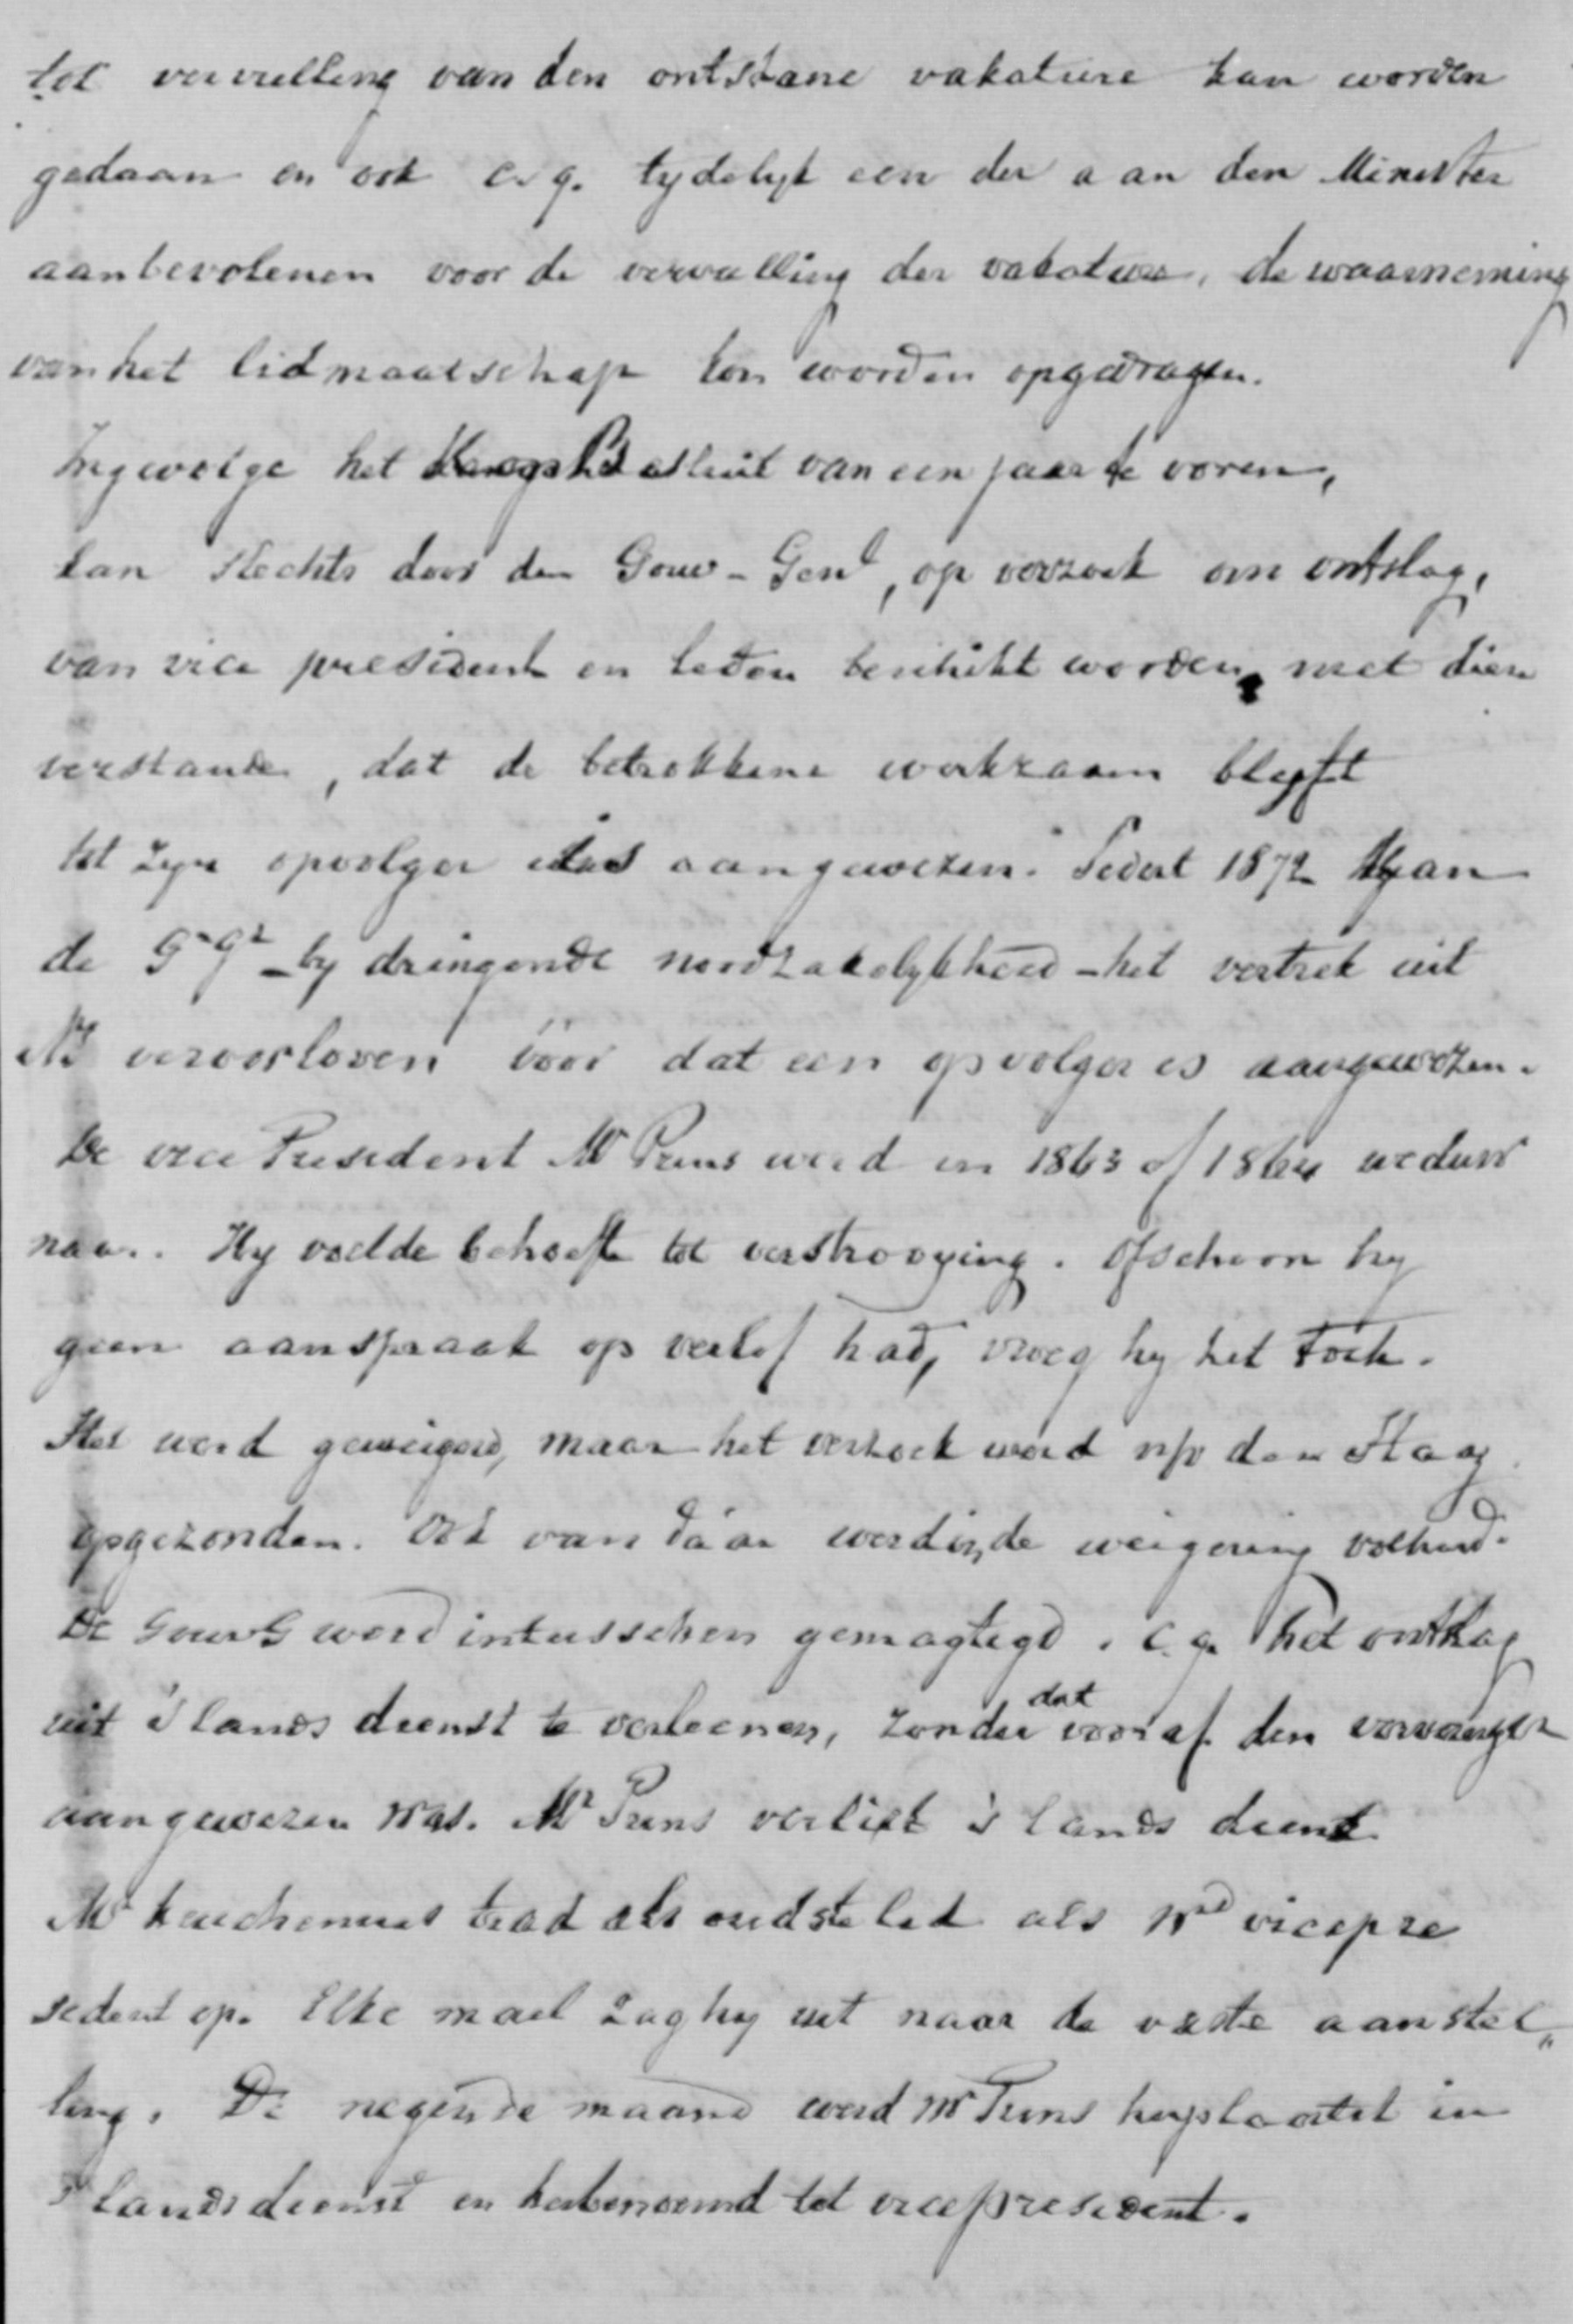 tot vervulling van den ontstane vakature kan worden
gedaan en ook c.q. tydelyk een der aan den Minister
aanbevolenen voor de vervulling der vakature, de waarneming
van het lidmaatschap kon worden opgedragen.
Ingevolge het besluit van een jaar te voren,
kan slechts door den Gouv-Genl, op verzoek om ontslag,
van vice president en leden beschikt worden, met dien
verstande, dat de betrokkene werkzaam blyft
tot zyn opvolger is aangewezen. Sedert 1872 kan
de G-Gl - by dringende noodzakelykheid - het vertrek uit
NI veroorloven vóór dat een opvolger is aangewezen.
De vice President Mr Prins werd in 1863 of 1864 weduw
naar. Hy voelde behoefte tot verstrooying. Ofschoon hy
geen aanspraak op verlof had, vroeg hy het toch.
Het werd geweigerd, maar het verzoek werd n/ den Haag
opgezonden. Ook van dáár werd in de weigering volhard.
De Gouv G werd intusschen gemagtigd. c.q. het ontslag
uit 's lands dienst te verleenen, zonder dat vooraf den vervanger
aangewezen was. Mr Prins verliet 's lands dienst.
Mr Keuchenius trad als oudste lid als wd vicepre
sident op. Elke mail zag hy uit naar de vaste aanstel„
ling. De negende maand werd Mr Prins herplaatst in
's lands dienst en herbenoemd tot vicepresident.